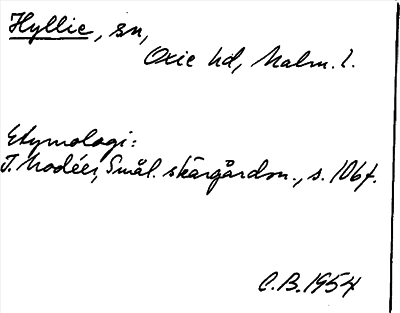 Hyllie, sn,
Oxie hd, Malm. l.
Etymologi:
I. Modéer, Smål. skärgårdsn., s. 106 f.
C.B. 1954